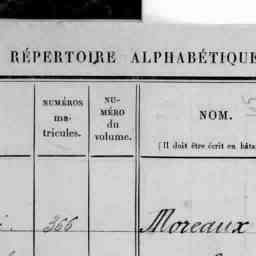 RÉPERTOIRE ALPHABÉTIQUE
NUMÉROS
ma-
tricules.
NU-
MÉRO
du
volume.
NOM.
(Il doit être écrit en bâta
366
Moreaux